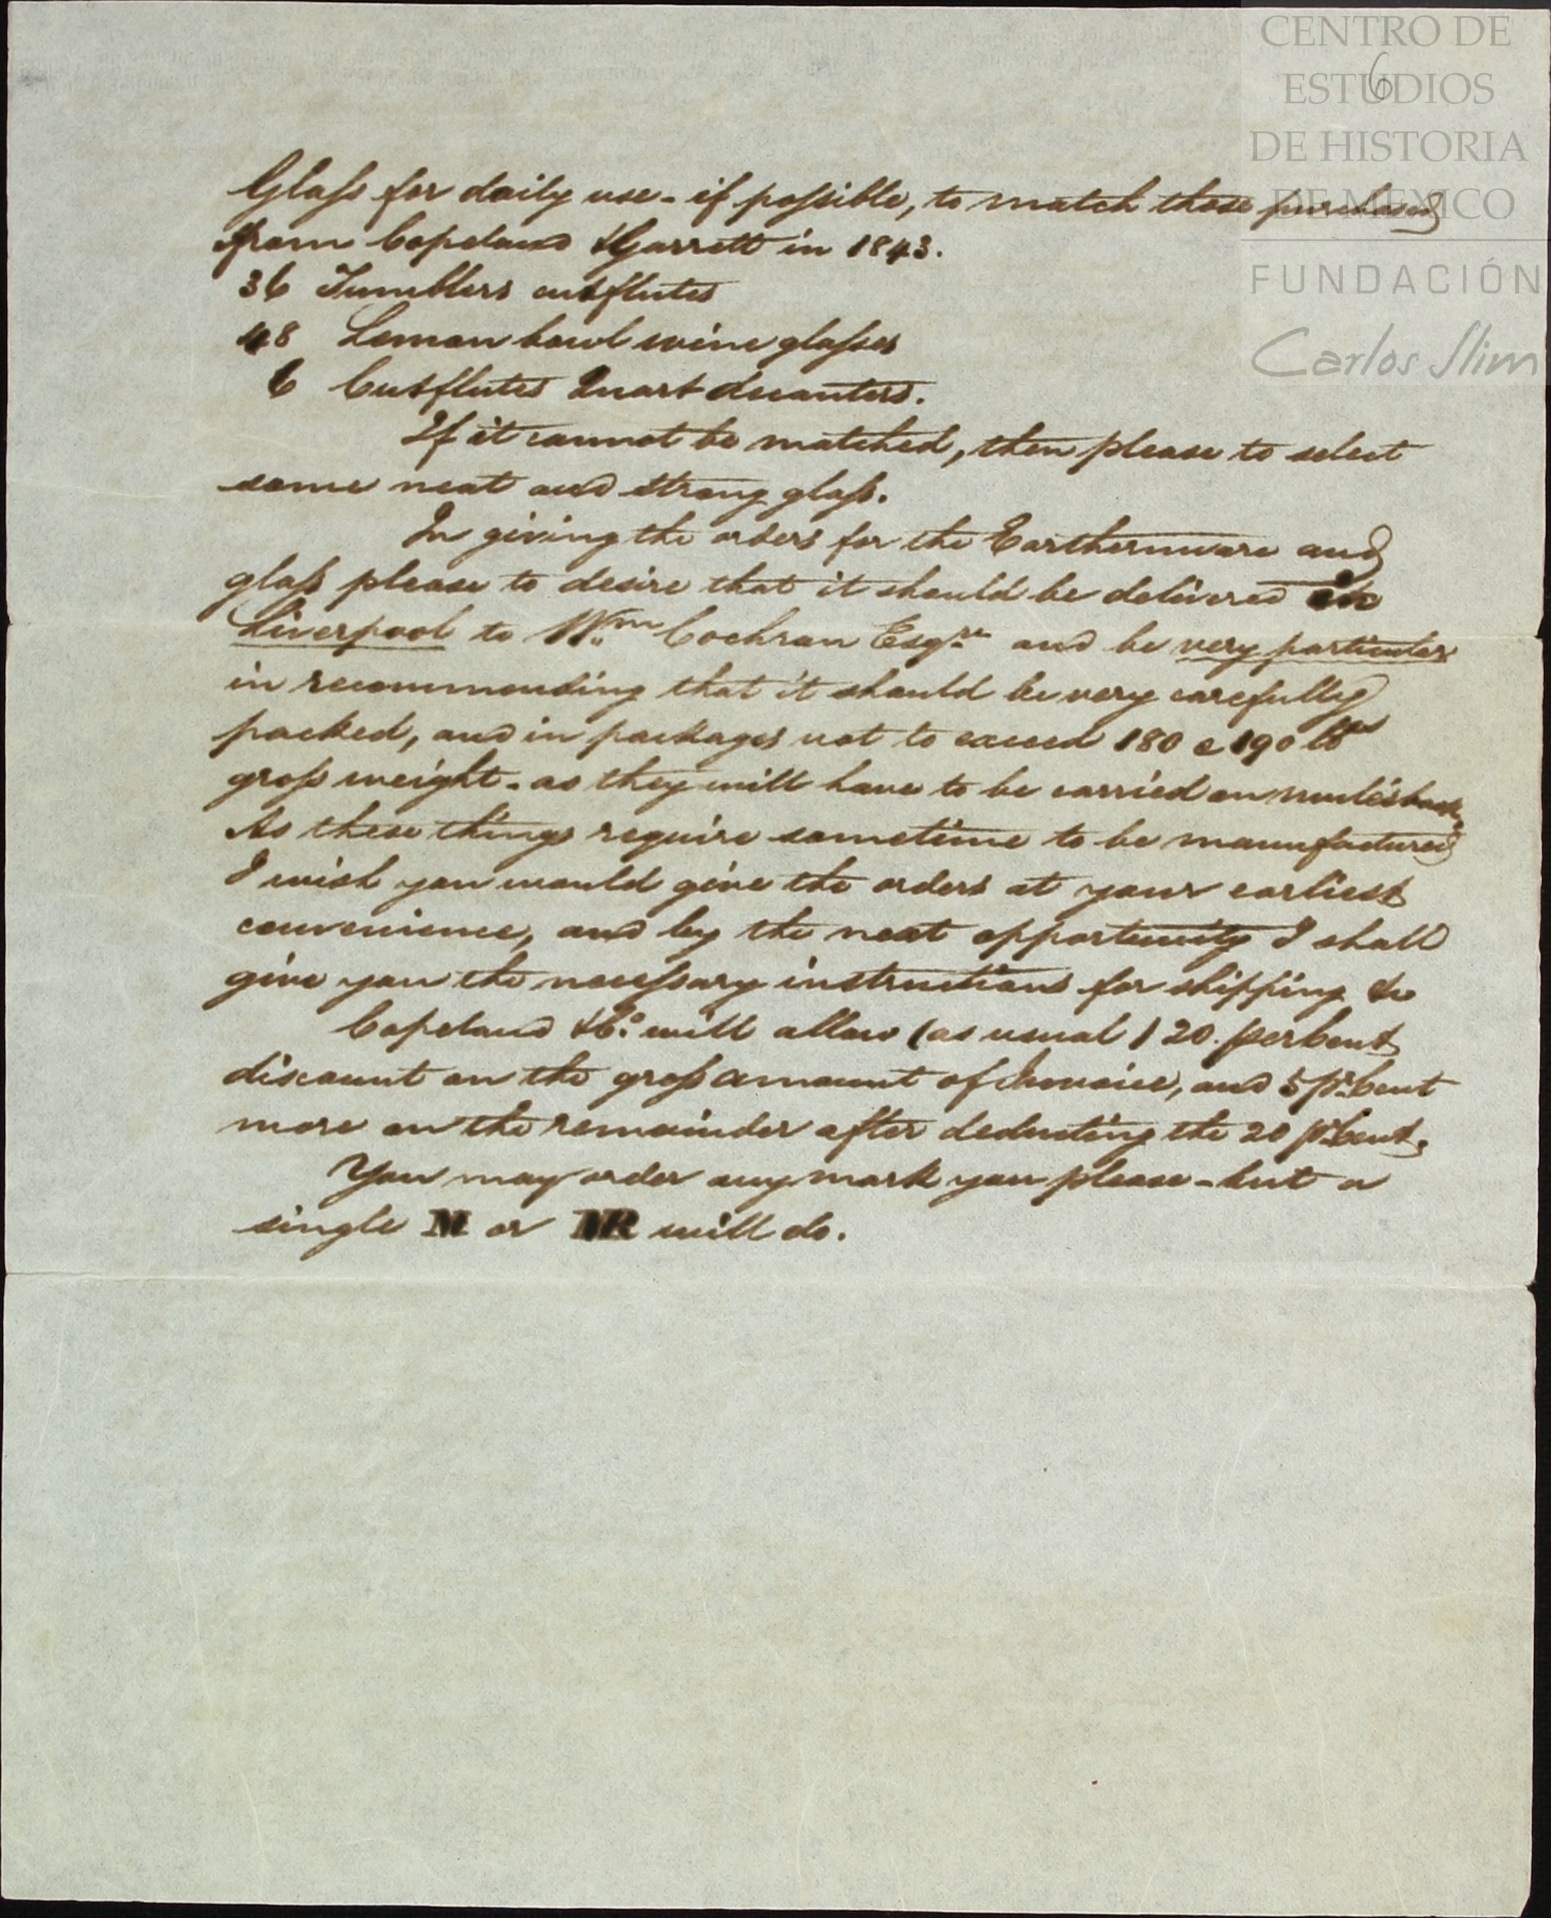 CENTRO DE
ESTUDIOS
DE HISTORIA
DE MEXICO
FUNDACIÓN
Carlos Slim
6
Glass for daily use - if possible, to match those purchased
from Copeland & Garrett in 1843.
36 Tumblers cut flutes
48 Lemon bowl wine glasses
6 Cut flutes Quart decanters.
If it cannot be matched, then please to select
some neat and strong glass.
In giving the orders for the Earthernware and
glass please to desire that it should be delivered in
Liverpool to Wm Cochran Esqre and be very particular
in recommending that it should be very carefully
packed, and in packages not to exceed 180 a 190 lbs
gross weight - as they will have to be carried on mules back.
As these things require sometime to be manufactured
I wish you would give the orders at your earliest
convenience, and by the next opportunity I shall
give you the necessary instructions for shipping &c
Copeland & Co. will allow (as usual) 20. per Cent
discount on the gross amount of Invoice, and 5 pr. Cent
more on the remainder after deducting the 20 pr. Cent.
You may order any mark you please - but a
single M or will do.